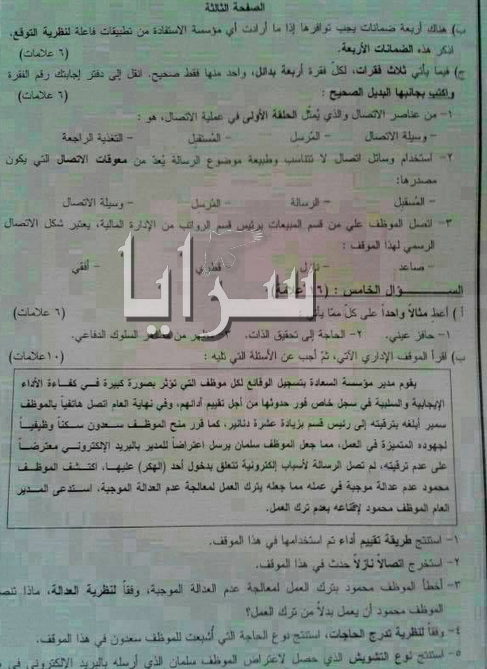 الصفحة الثالثة
ب) هناك أربعة ضمانات يجب توافرها إذا ما أرادت أي مؤسسة الاستفادة من تطبيقات فاعلة لنظرية التوقع،
اذكر هذه الضمانات الأربعة. (٦ علامات)
ج) فيما يأتي ثلاث فقرات، لكل فقرة أربعة بدائل، واحد منها فقط صحيح. انقل إلى دفتر إجابتك رقم الفقرة
واكتب بجانبها البديل الصحيح : (٦ علامات)
١- من عناصر الاتصال والذي يُمثّل الحلقة الأولى في عملية الاتصال، هو :
- وسيلة الاتصال - المُرسل - المُستقبل - التغذية الراجعة
٢- استخدام وسائل اتصال لا تتناسب وطبيعة موضوع الرسالة يُعدّ من معوقات الاتصال التي يكون
مصدرها:
- المُستقبل - الرسالة - المُرسل - وسيلة الاتصال
٣- اتصل الموظف علي من قسم المبيعات برئيس قسم الرواتب من الإدارة المالية، يعتبر شكل الاتصال
الرسمي لهذا الموقف :
- صاعد - نازل - قطري - أفقي
سرايا
الســـــؤال الخامس : (١٦ علامة)
أ ) أعطِ مثالاً واحداً على كلّ ممّا يأتي (٦ علامات)
١- حافز عيني. ٢- الحاجة إلى تحقيق الذات. ٣- السلوك الدفاعي.
ب) اقرأ الموقف الإداري الآتي، ثمّ أجب عن الأسئلة التي تليه : (١٠ علامات)
يقوم مدير مؤسسة السعادة بتسجيل الوقائع لكل موظف التي تؤثر بصورة كبيرة في كفاءة الأداء
الإيجابية والسلبية في سجل خاص فور حدوثها من أجل تقييم أدائهم، وفي نهاية العام اتصل هاتفياً بالموظف
سمير أبلغه بترقيته إلى رئيس قسم بزيادة عشرة دنانير، كما قرر منح الموظف سعدون سكناً وظيفياً
لجهوده المتميزة في العمل، مما جعل الموظف سلمان يرسل اعتراضاً للمدير بالبريد الإلكتروني معترضاً
على عدم ترقيته، لم تصل الرسالة لأسباب إلكترونية تتعلق بدخول أحد (الهكر) عليها، اكتشف الموظف
محمود عدم عدالة موجبة في عمله مما جعله يترك العمل لمعالجة عدم العدالة الموجبة، استدعى المدير
العام الموظف محمود لإقناعه بعدم ترك العمل.
١- استنتج طريقة تقييم أداء تم استخدامها في هذا الموقف.
٢- استخرج اتصالاً نازلاً حدث في هذا الموقف.
٣- أخطأ الموظف محمود بترك العمل لمعالجة عدم العدالة الموجبة، وفقاً لنظرية العدالة، ماذا
الموظف محمود أن يعمل بدلاً من ترك العمل؟
٤- وفقاً لنظرية تدرج الحاجات، استنتج نوع الحاجة التي أُشبعت للموظف سعدون في هذا الموقف.
٥- استنتج نوع التشويش الذي حصل لاعتراض الموظف سلمان الذي أرسله بالبريد الإلكتروني في